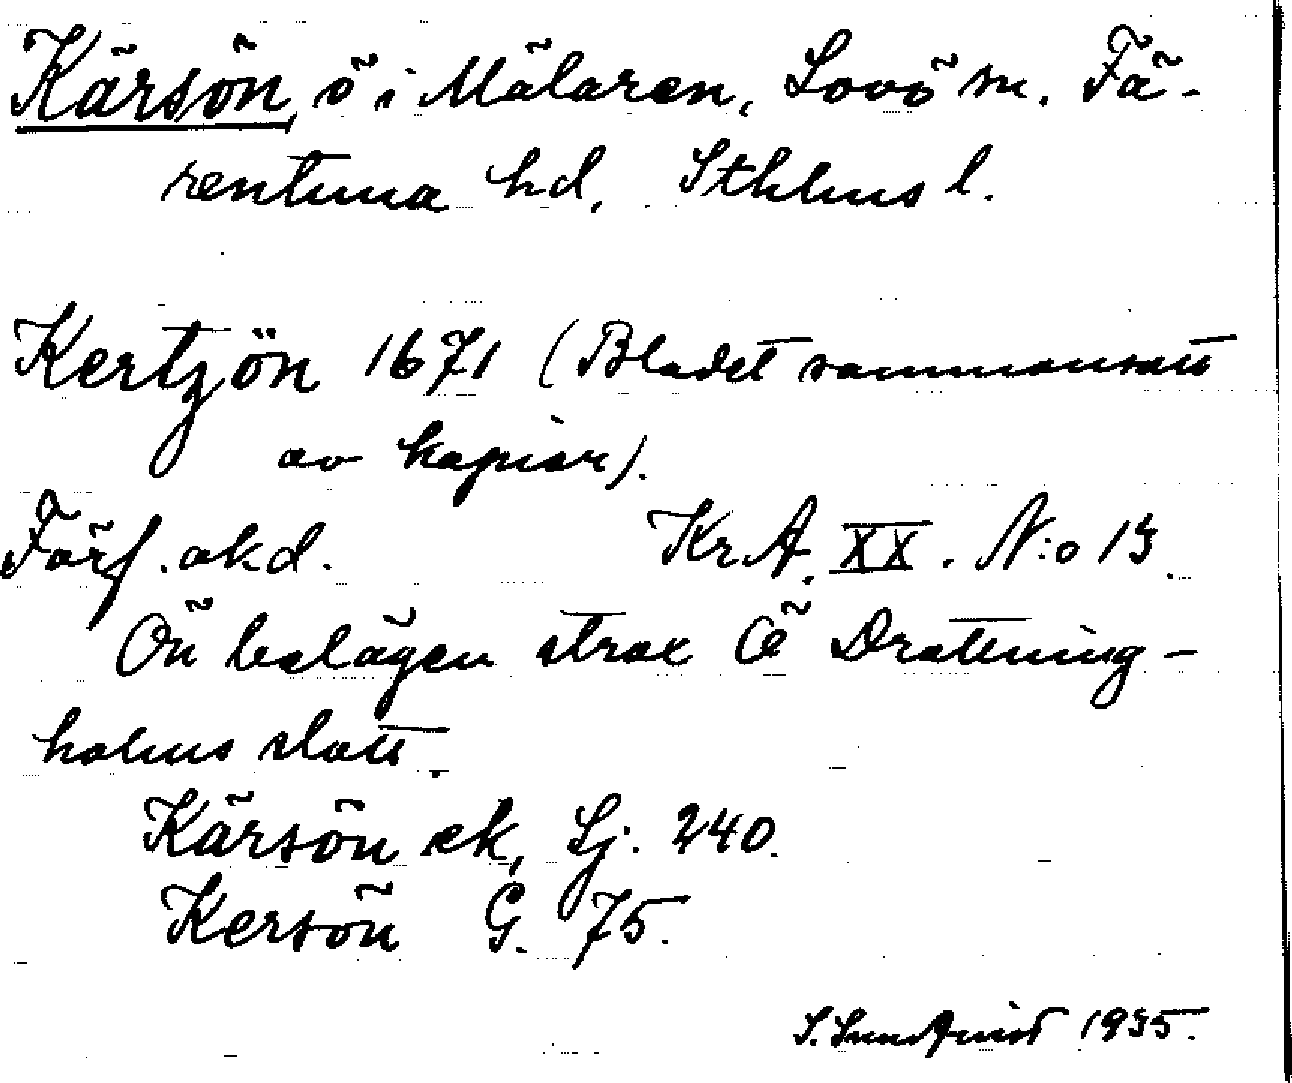 Kärsön, ö i Mälaren, Lovö sn. Fä-
rentuna hd, Sthlms l.
Kertzön 1671 (Bladet sammansatt
av kopior).
Förf. okd. Kr A. XX. N:o 13.
Ön belägen strax Ö Drottning-
holms slott.
Kärsön ek, Lj. 240.
Kersön G. 75.
S. Sundqvist 1935.